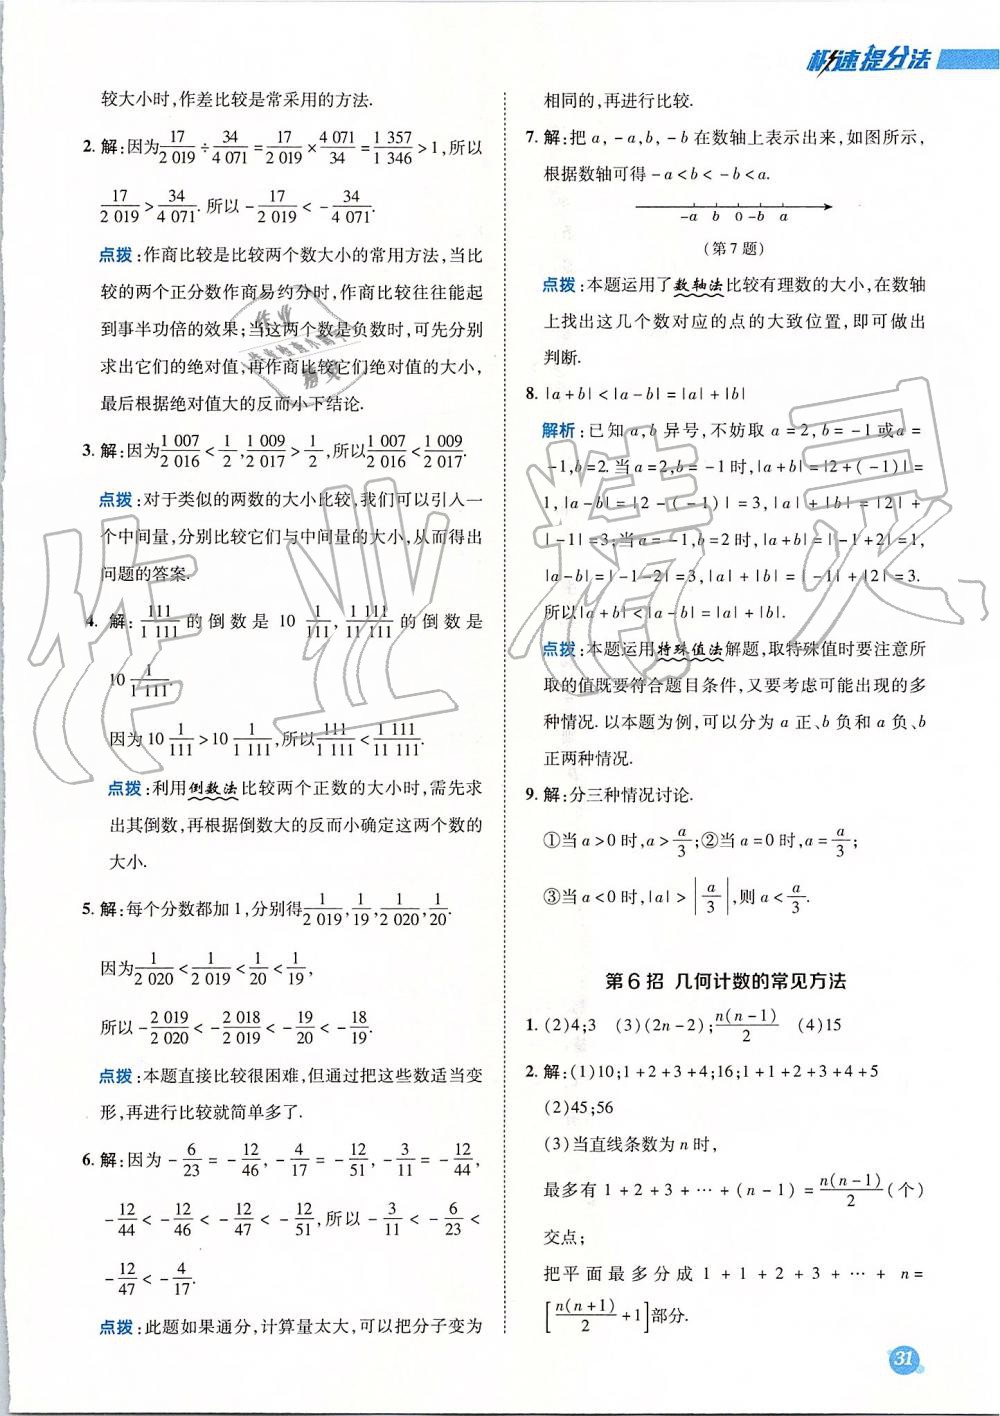 极速提分法
较大小时,作差比较是常采用的方法.
2. 解:因为17/2 019÷34/4 071=17/2 019×4 071/34=1 357/1 346>1,所以
17/2 019>34/4 071.所以-17/2 019<-34/4 071.
点拨:作商比较是比较两个数大小的常用方法,当比
较的两个正分数作商易约分时,作商比较往往能起
到事半功倍的效果;当这两个数是负数时,可先分别
求出它们的绝对值,再作商比较它们绝对值的大小,
最后根据绝对值大的反而小下结论.
3. 解:因为1 007/2 016<1/2,1 009/2 017>1/2,所以1 007/2 016<1 009/2 017.
点拨:对于类似的两数的大小比较,我们可以引入一
个中间量,分别比较它们与中间量的大小,从而得出
问题的答案.
4. 解:111/1 111的倒数是10 1/111,1 111/11 111的倒数是
10 1/1 111.
因为10 1/111>10 1/1 111,所以111/1 111<1 111/11 111.
点拨:利用倒数法比较两个正数的大小时,需先求
出其倒数,再根据倒数大的反而小确定这两个数的
大小.
5. 解:每个分数都加1,分别得1/2 019,1/19,1/2 020,1/20.
因为1/2 020<1/2 019<1/20<1/19,
所以-2 019/2 020<-2 018/2 019<-19/20<-18/19.
点拨:本题直接比较很困难,但通过把这些数适当变
形,再进行比较就简单多了.
6. 解:因为-6/23=-12/46,-4/17=-12/51,-3/11=-12/44,
-12/44<-12/46<-12/47<-12/51,所以-3/11<-6/23<
-12/47<-4/17.
点拨:此题如果通分,计算量太大,可以把分子变为
相同的,再进行比较.
7. 解:把a,-a,b,-b在数轴上表示出来,如图所示,
根据数轴可得-a<b<-b<a.
-a b 0 -b a
(第7题)
点拨:本题运用了数轴法比较有理数的大小,在数轴
上找出这几个数对应的点的大致位置,即可做出
判断.
8. |a+b|<|a-b|=|a|+|b|
解析:已知a,b异号,不妨取a=2,b=-1或a=
-1,b=2.当a=2,b=-1时,|a+b|=|2+(-1)|=
1,|a-b|=|2-(-1)|=3,|a|+|b|=|2|+
|-1|=3;当a=-1,b=2时,|a+b|=|-1+2|=1,
|a-b|=|-1-2|=3,|a|+|b|=|-1|+|2|=3.
所以|a+b|<|a-b|=|a|+|b|.
点拨:本题运用特殊值法解题,取特殊值时要注意所
取的值既要符合题目条件,又要考虑可能出现的多
种情况.以本题为例,可以分为a正、b负和a负、b
正两种情况.
9. 解:分三种情况讨论.
①当a>0时,a>a/3;②当a=0时,a=a/3;
③当a<0时,|a|>|a/3|,则a<a/3.
第6招 几何计数的常见方法
1. (2)4;3 (3)(2n-2);n(n-1)/2 (4)15
2. 解:(1)10;1+2+3+4;16;1+1+2+3+4+5
(2)45;56
(3)当直线条数为n时,
最多有1+2+3+…+(n-1)=n(n-1)/2(个)
交点;
把平面最多分成1+1+2+3+…+n=
[n(n+1)/2+1]部分.
31
作业精灵